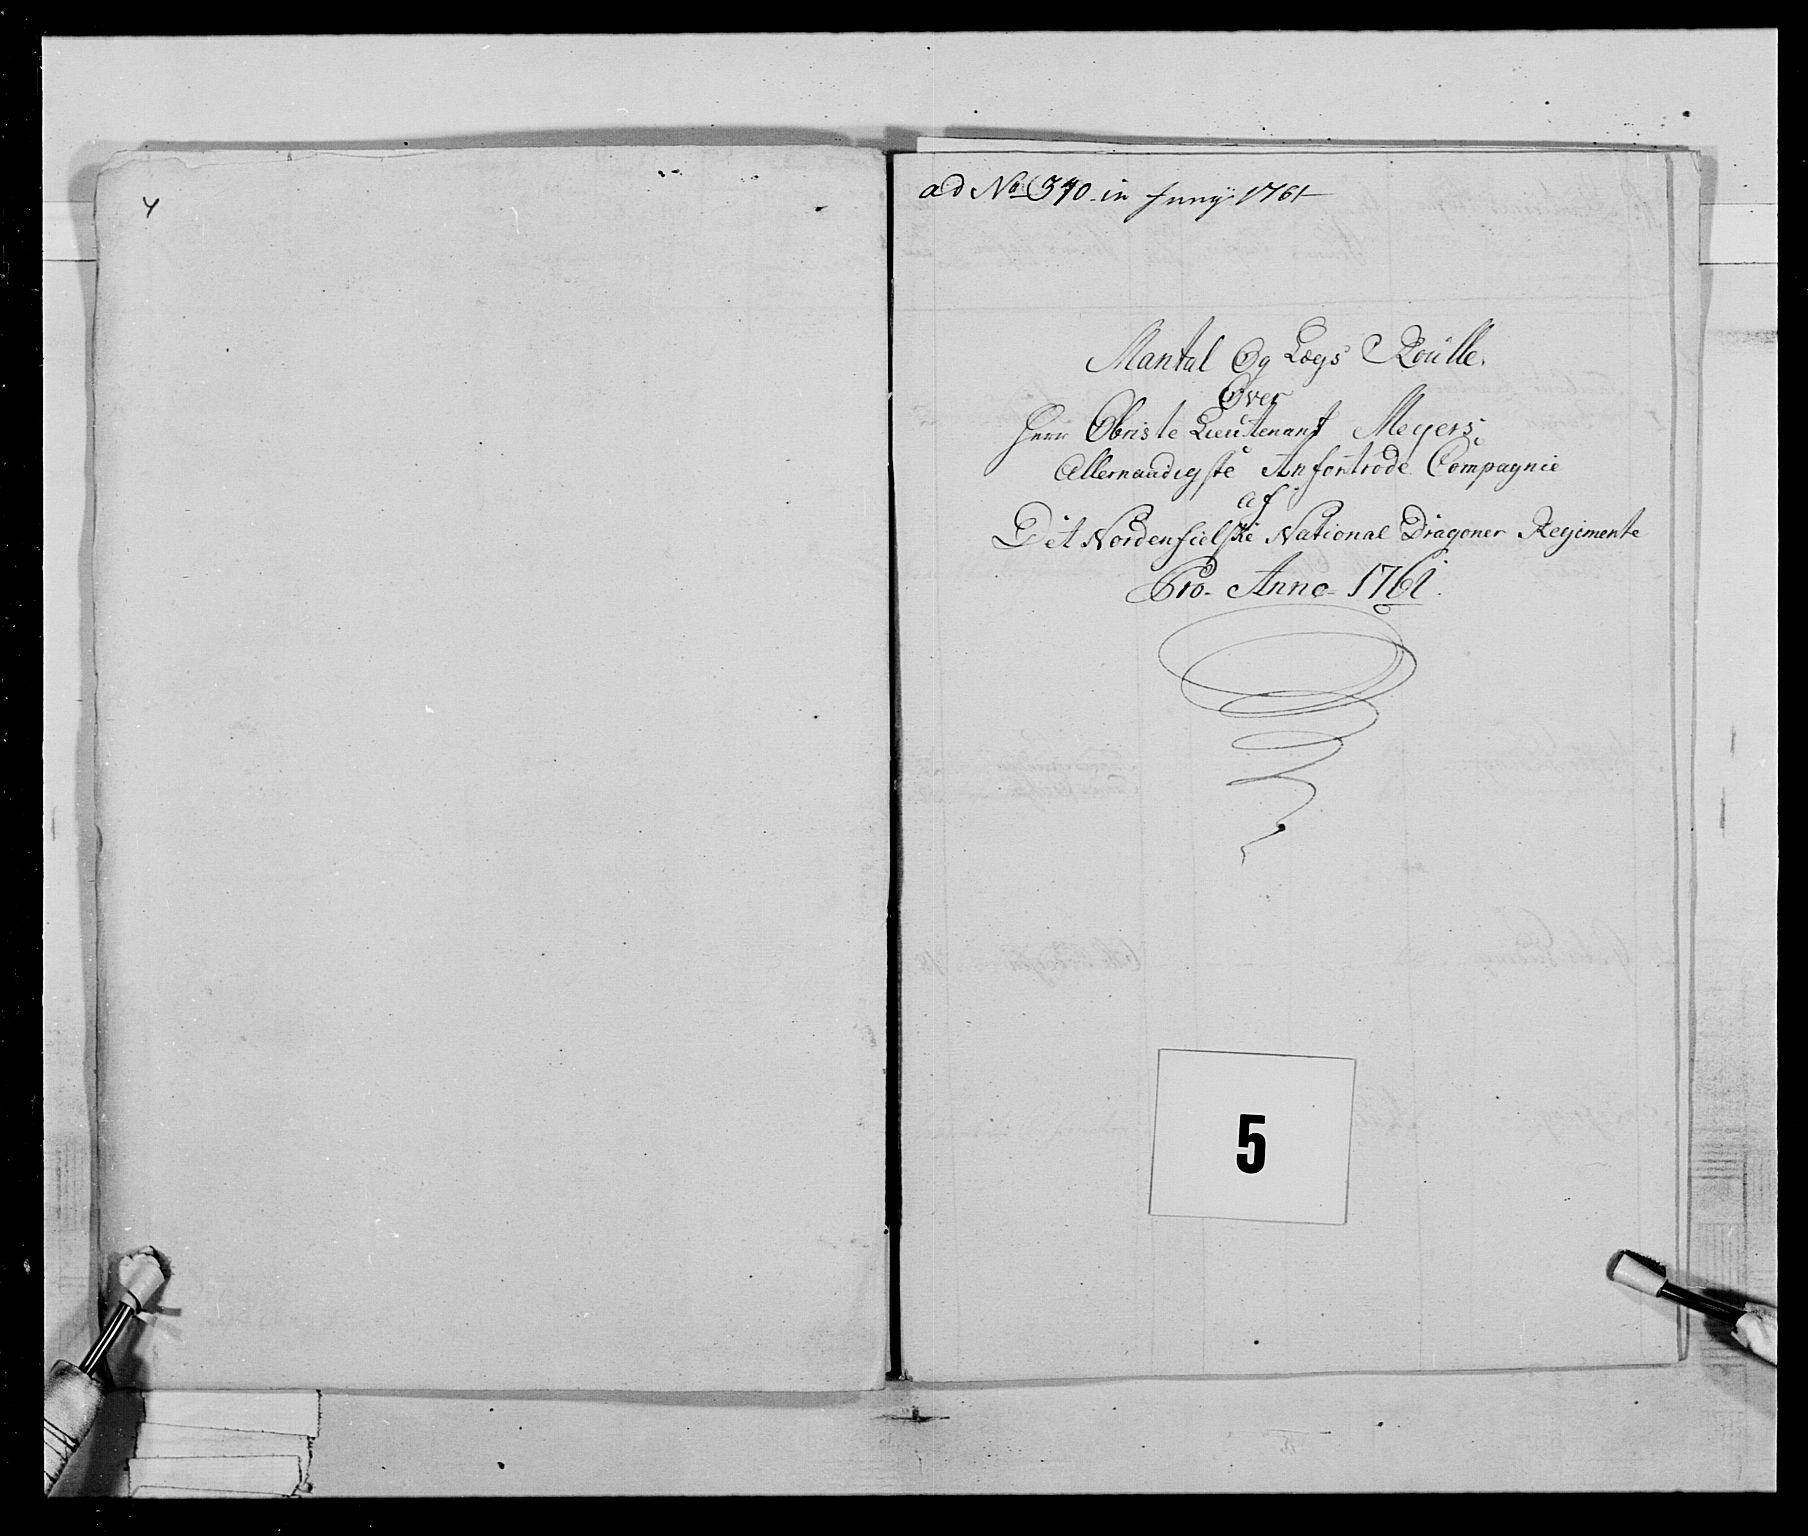 4
ad No 370 in Juny 1761
Mantal Og Lægs Roülle
Over
Herr Obriste Lieutenant Meyers
Allernaadigste Anfortrode Compagnie
af
Det Nordenfielske National Dragoner Regimente
Pro Anno 1761
5